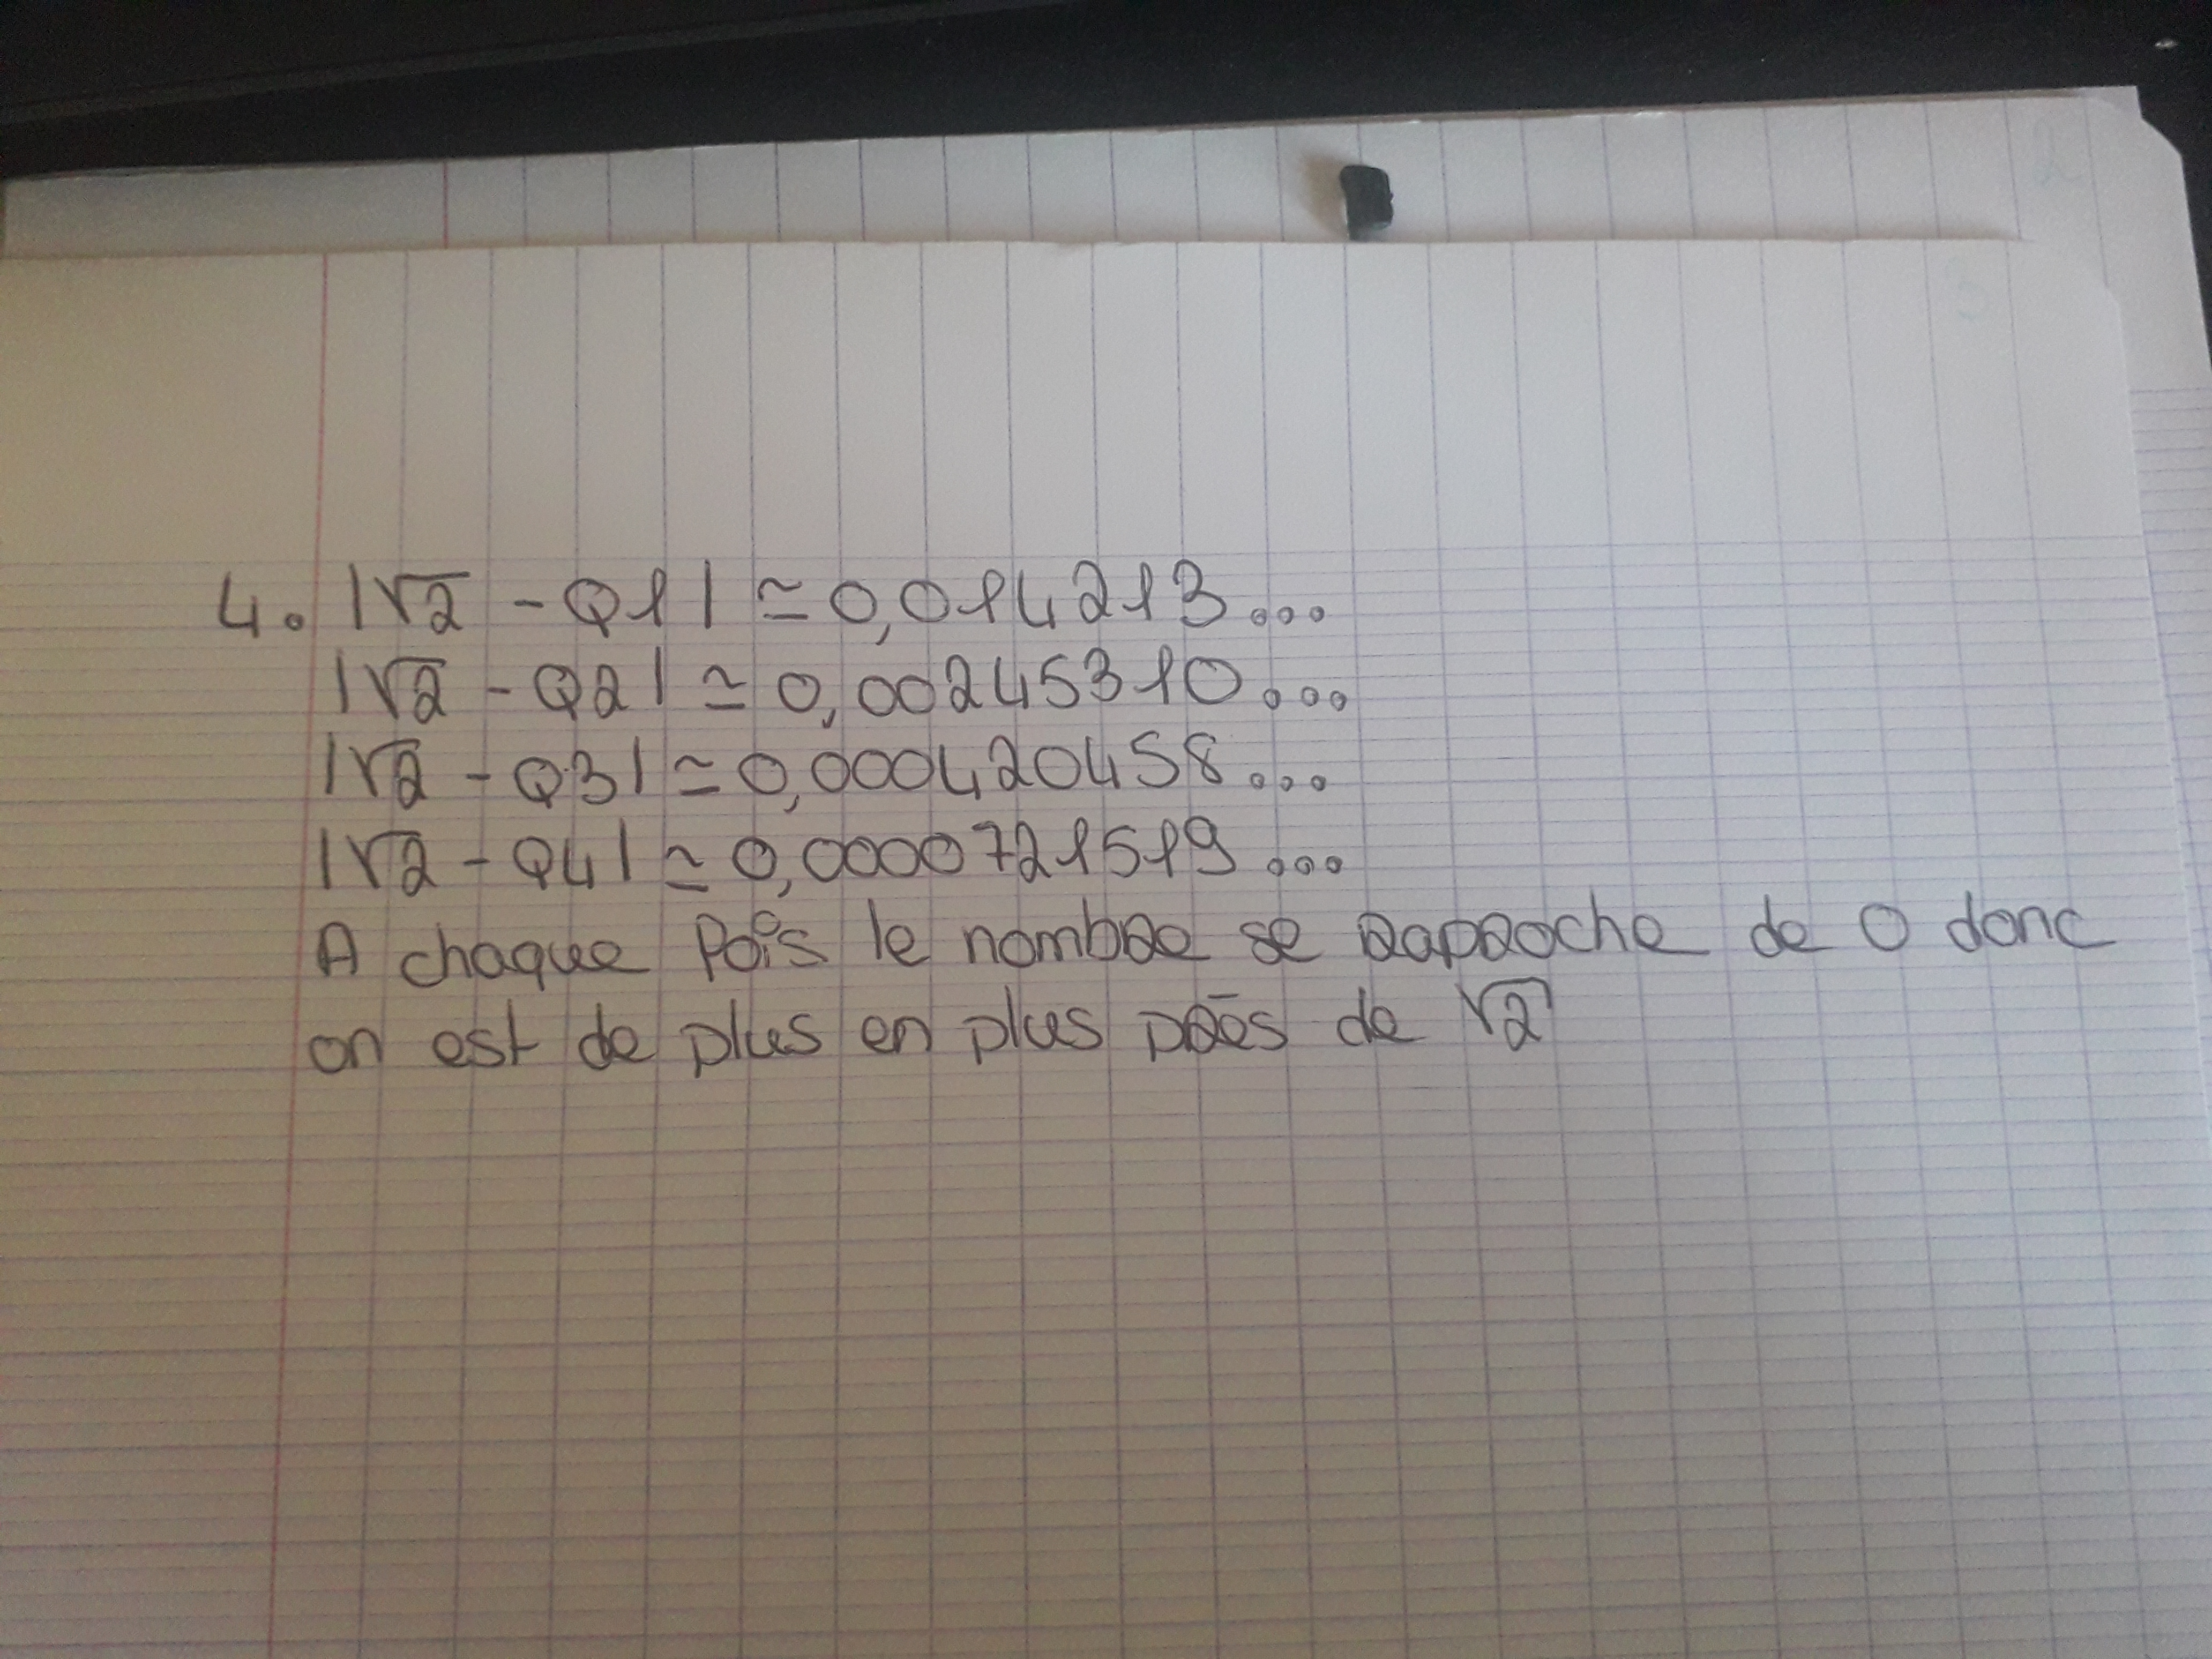 4. |√2 - Q1| ≃ 0,014213...
|√2 - Q2| ≃ 0,00245310...
|√2 - Q3| ≃ 0,000420458...
|√2 - Q4| ≃ 0,0000721519...
A chaque fois le nombre se raproche de 0 donc
on est de plus en plus près de √2